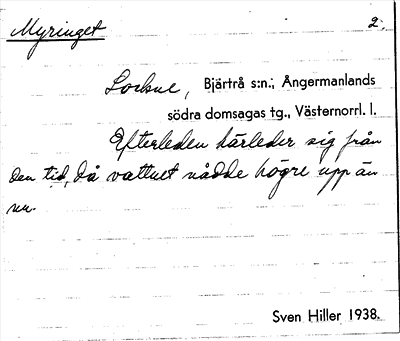 Myringet 2.
Lockne, Bjärtrå s:n; Ångermanlands
södra domsagas tg., Västernorrl. l.
Efterleden härleder sig från
den tid, då vattnet nådde högre upp än
nu.
Sven Hiller 1938.